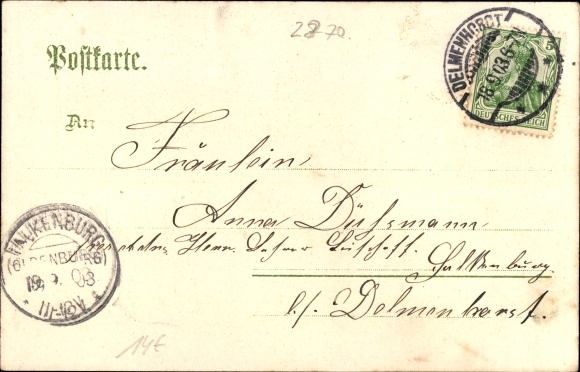 2870.
Postkarte.
DELMENHORST
18.9.03.6-7
5
DEUTSCHES REICH
An
Fräulein
Anna Dühsmann
Herrn Lehrer Lüschoff.
Falkenburg
b./ Delmenhorst.
FALKENBURG
(OLDENBURG)
19.9.03
11-12V
14€